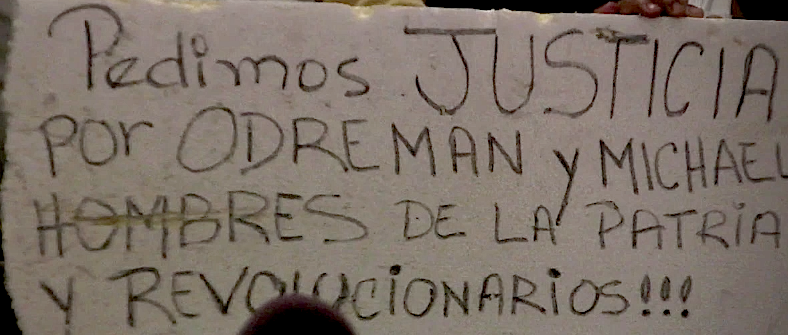 Pedimos JUSTICIA
por ODREMAN y MICHAEL
HOMBRES DE LA PATRiA
y REVOLUCiONARiOS!!!